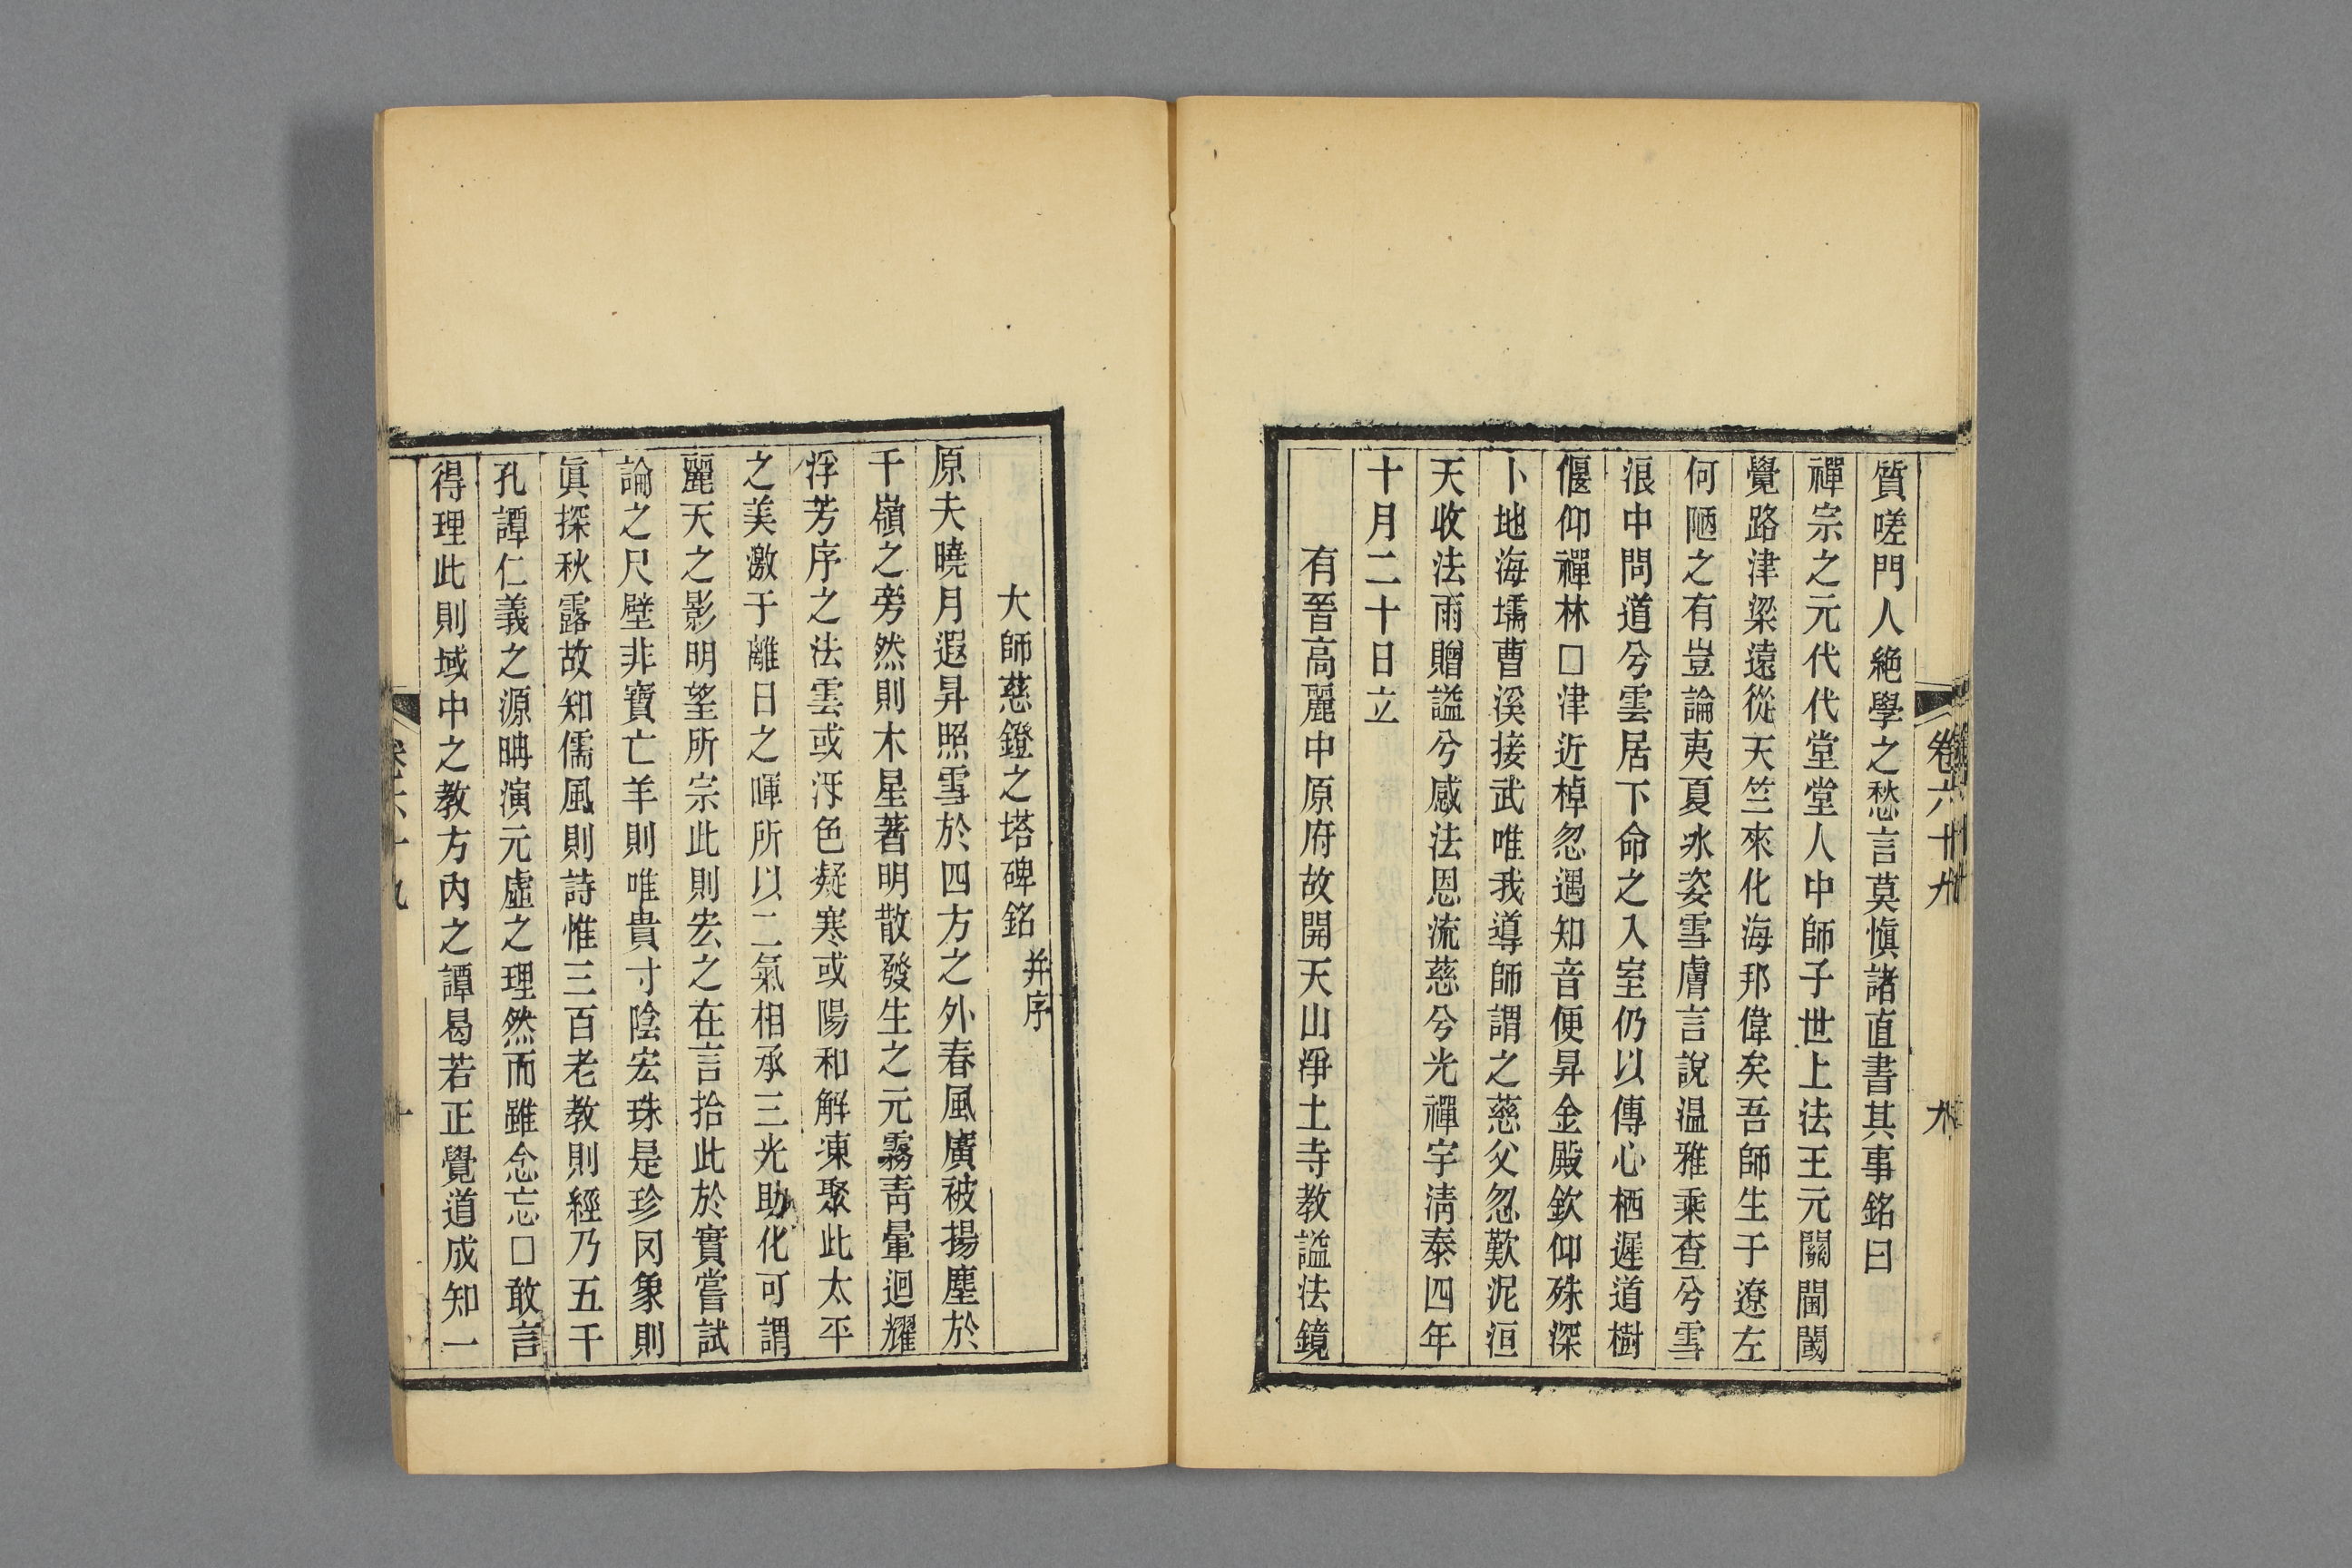 卷六十九
九
質嗟門人絶學之愁言莫愼諸直書其事銘曰
禪宗之元代代堂堂人中師子世上法王元關闖閾
覺路津梁遠從天竺來化海邦偉矣吾師生于遼左
何陋之有豈論夷夏氷姿雪膚言說温雅乘查兮雪
浪中問道兮雲居下命之入室仍以傳心栖遲道樹
偃仰禪林□津近棹忽遇知音便昇金殿欽仰殊深
卜地海壖曹溪接武唯我導師謂之慈父忽歎泥洹
天收法雨贈謚兮感法恩流慈兮光禪宇淸泰四年
十月二十日立
有晉高麗中原府故開天山淨土寺教謚法鏡
大師慈鐙之塔碑銘并序
原夫曉月遐昇照雪於四方之外春風廣被揚塵於
千嶺之旁然則木星著明散發生之元霧靑暈迴耀
浮芳序之法雲或洿色凝寒或陽和解凍聚此太平
之美激于離日之暉所以二氣相承三光助化可謂
麗天之影明望所宗此則宏之在言拾此於實嘗試
論之尺壁非寶亡羊則唯貴寸陰宏珠是珍罔象則
眞探秋露故知儒風則詩惟三百老教則經乃五千
孔譚仁義之源聃演元虛之理然而雖念忘□敢言
得理此則域中之教方內之譚曷若正覺道成知一
卷六十九
十